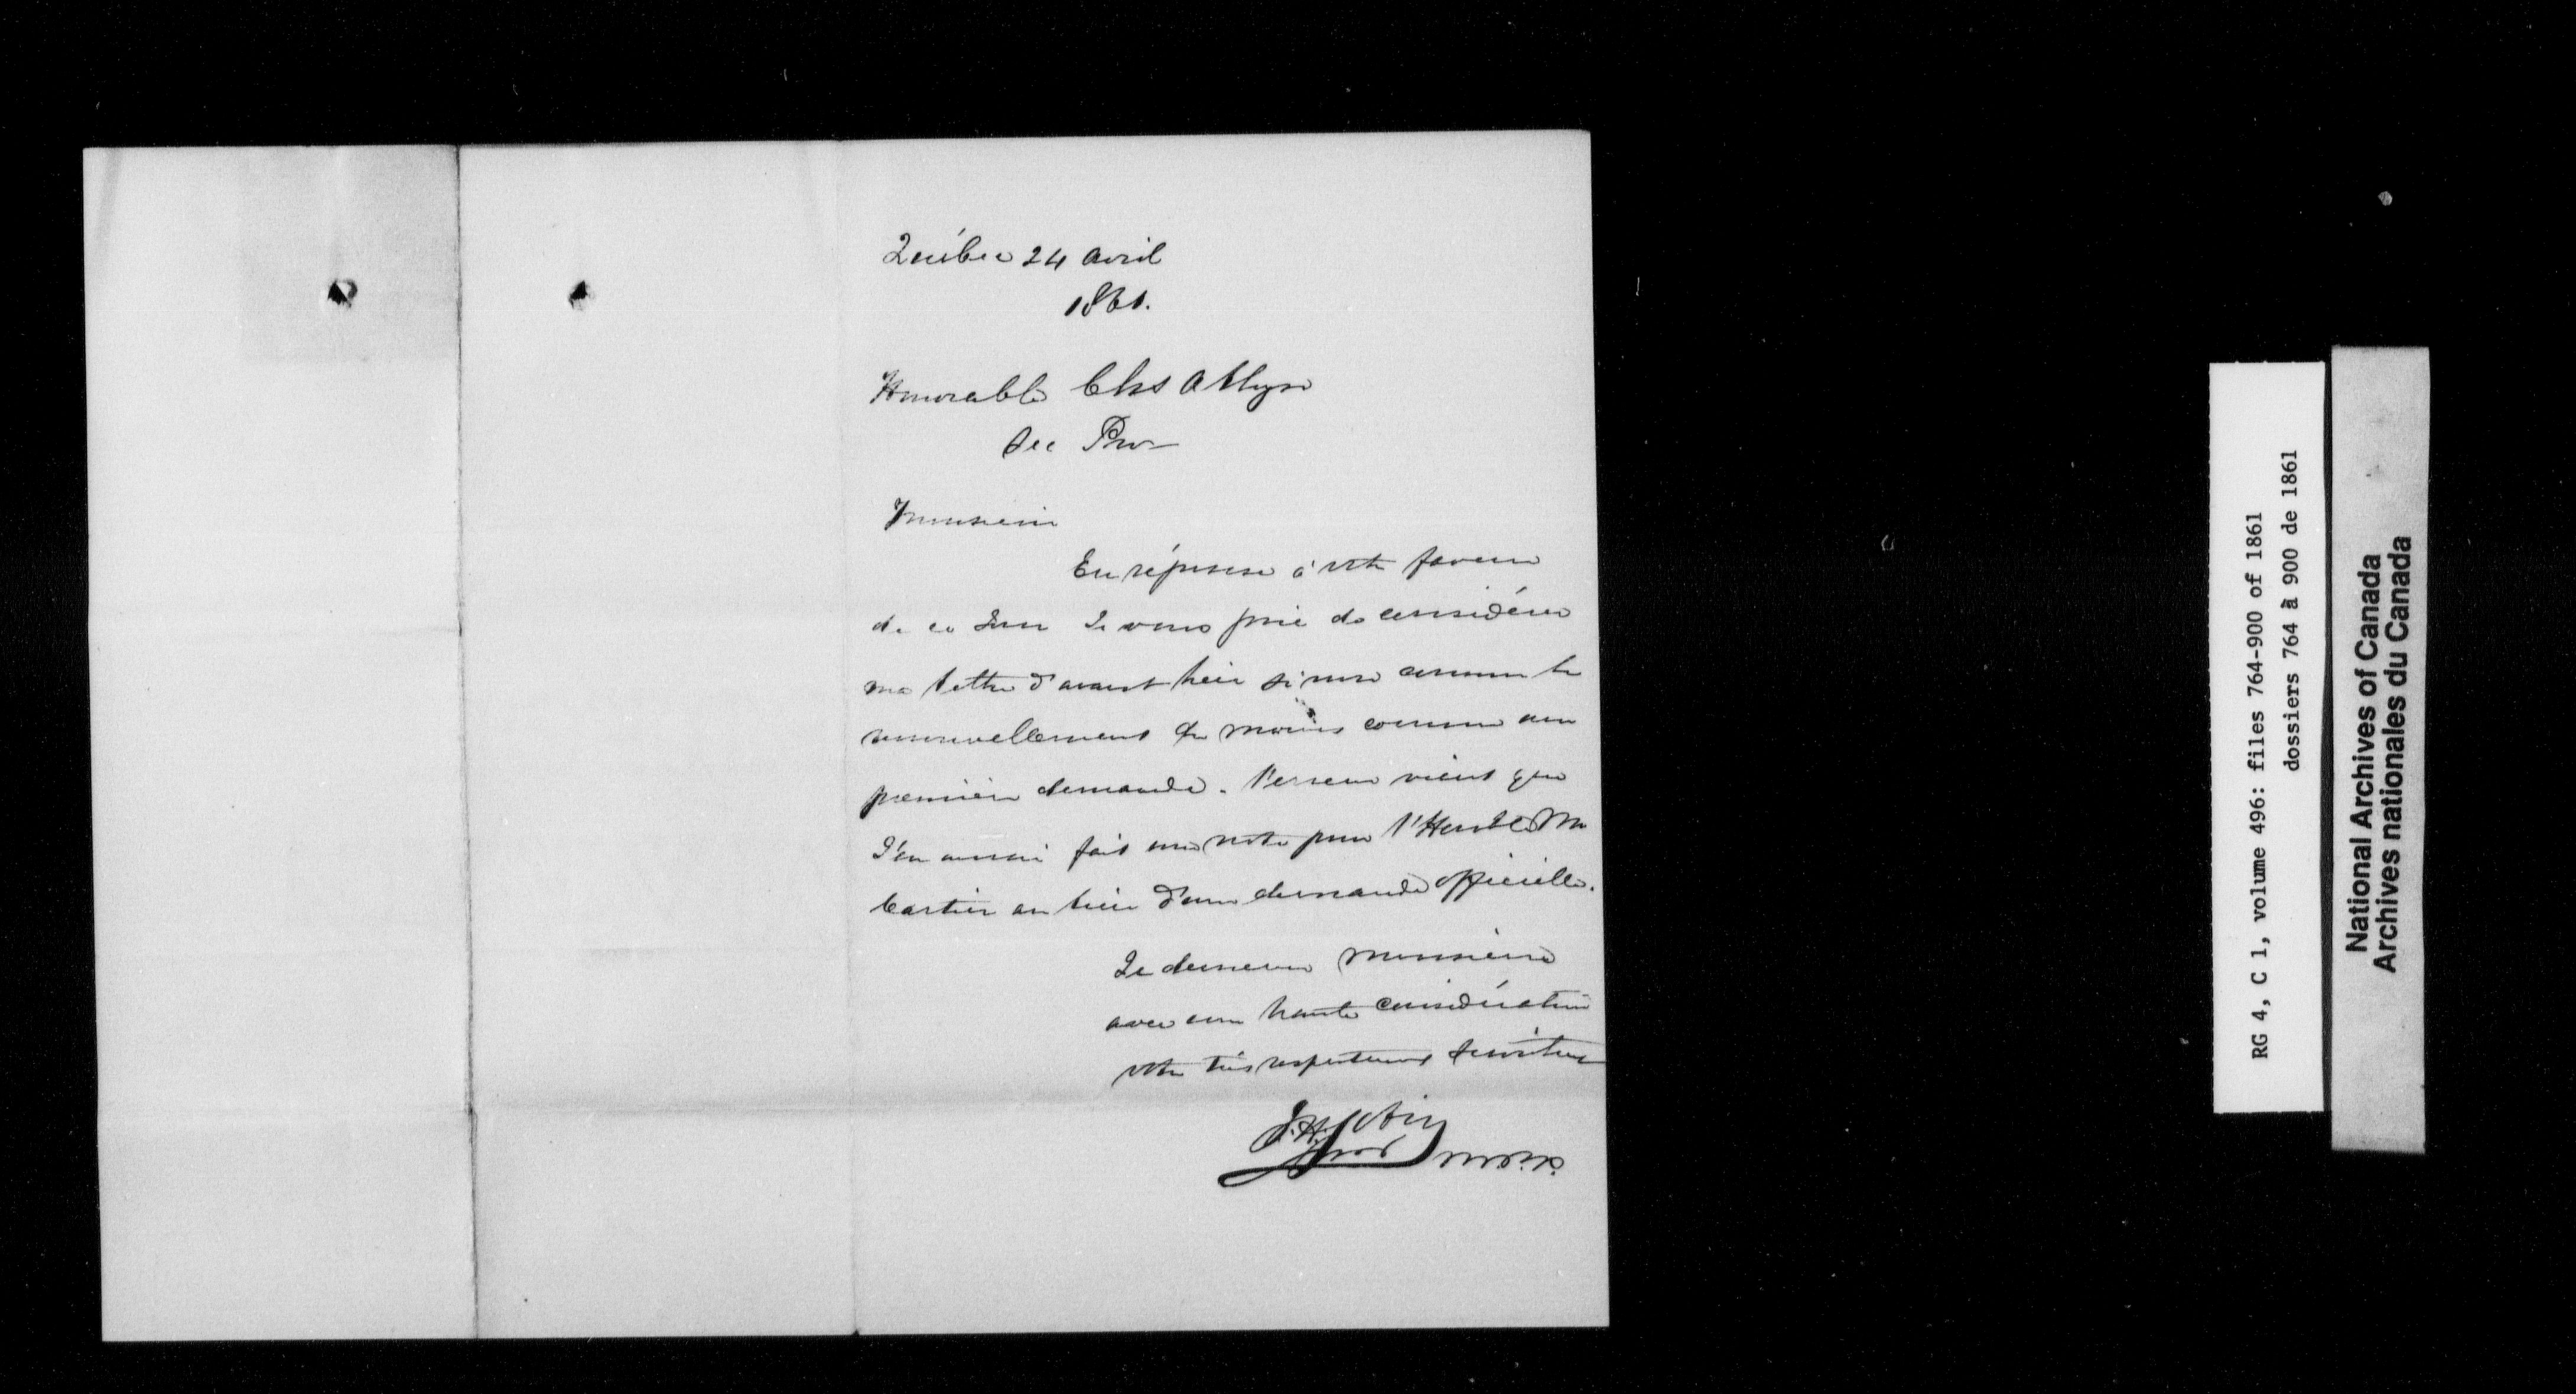 Québec 24 avril
1861.
Honorable Chs Alleyn
Sec Pro
Monsieur
En réponse à votre faveur
de ce Jour Je vous prie de considérer
ma lettre d'avant hier sinon comme le
renouvellement du moins comme une
première demande. l'erreur vient que
J'en aurai fait une note pour l'Honble Mr
Cartier au lieu d'une demande officielle.
Je demeure Monsieur
avec une haute considération
votre très respectueux serviteur
RG 4, C 1, volume 496: files 764-900 of 1861
dossiers 764 à 900 de 1861
National Archives of Canada
Archives nationales du Canada